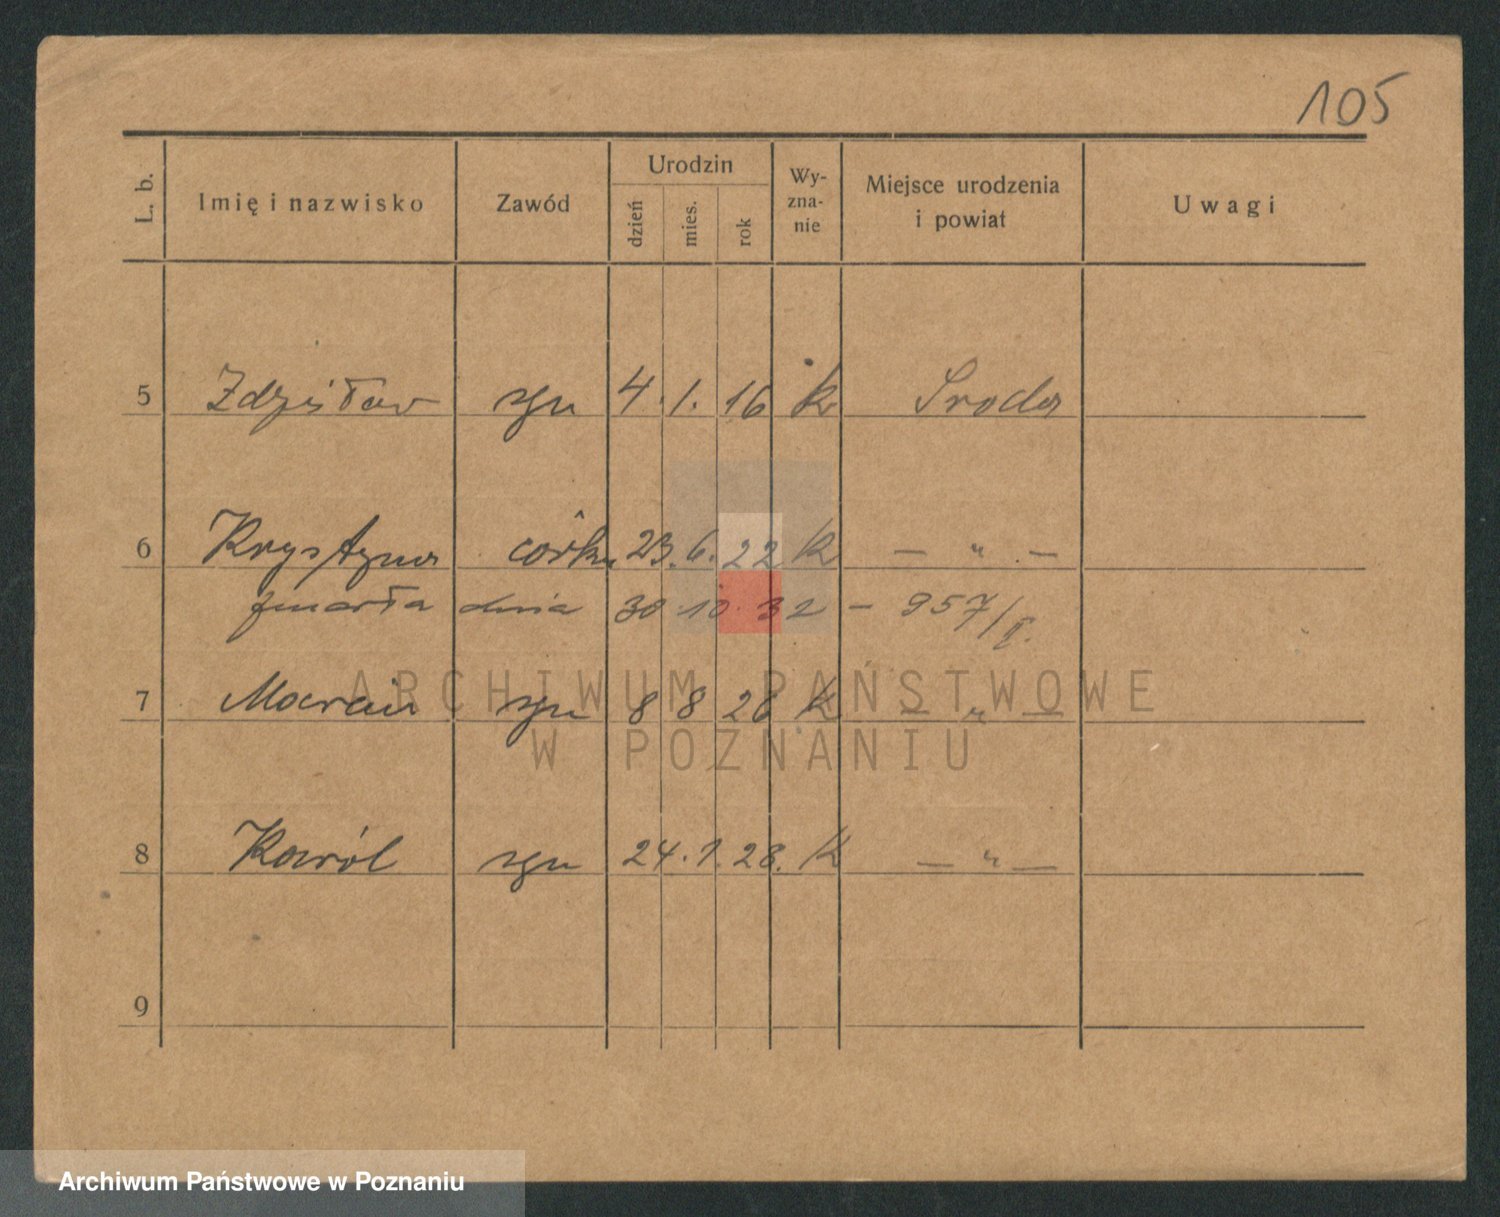 105
L. b. Imię i nazwisko Zawód Urodzin dzień mies. rok Wy-zna-nie Miejsce urodzenia i powiat Uwagi
5 Zdzisław syn 4. 1. 16 k Sroda
6 Krystyna córka 23. 6. 22 k — " —
zmarła dnia 30 10. 32 – 957/II.
7 Marian syn 8 8 28 k — " —
8 Karól syn 24. 1. 28. k — " —
9
ARCHIWUM PAŃSTWOWE
W POZNANIU
Archiwum Państwowe w Poznaniu